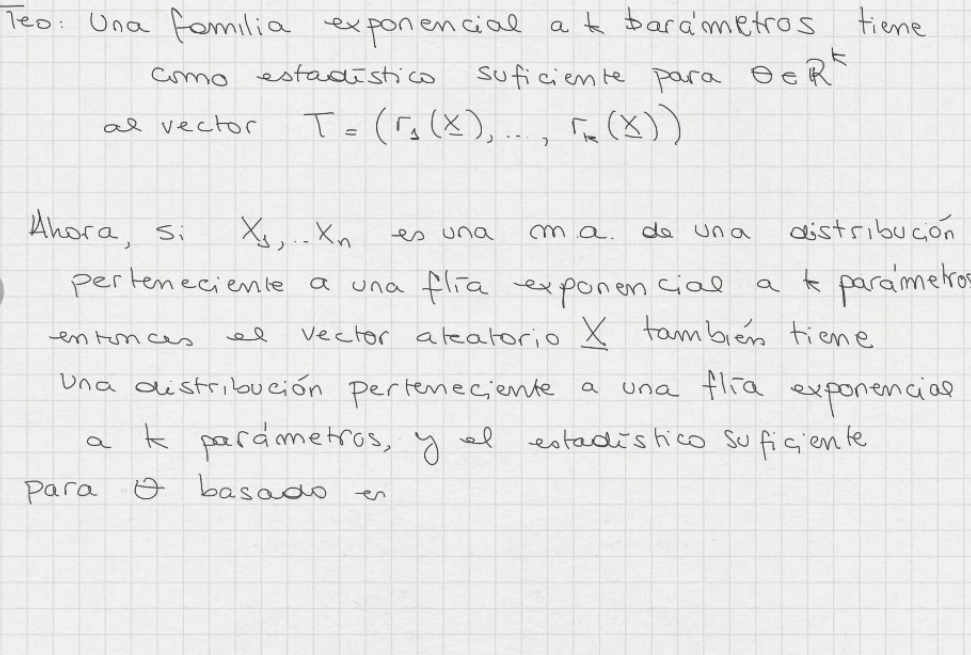 Teo: Una familia exponencial a k parámetros tiene
como estadístico suficiente para θ ∈ ℝᵏ
al vector T = (r₁(X), ..., rₖ(X))
Ahora, si X₁,..Xₙ es una m.a. de una distribución
perteneciente a una flía exponencial a k parámetros
entonces el vector aleatorio X también tiene
una distribución perteneciente a una flía exponencial
a k parámetros, y el estadístico suficiente
para θ basado en